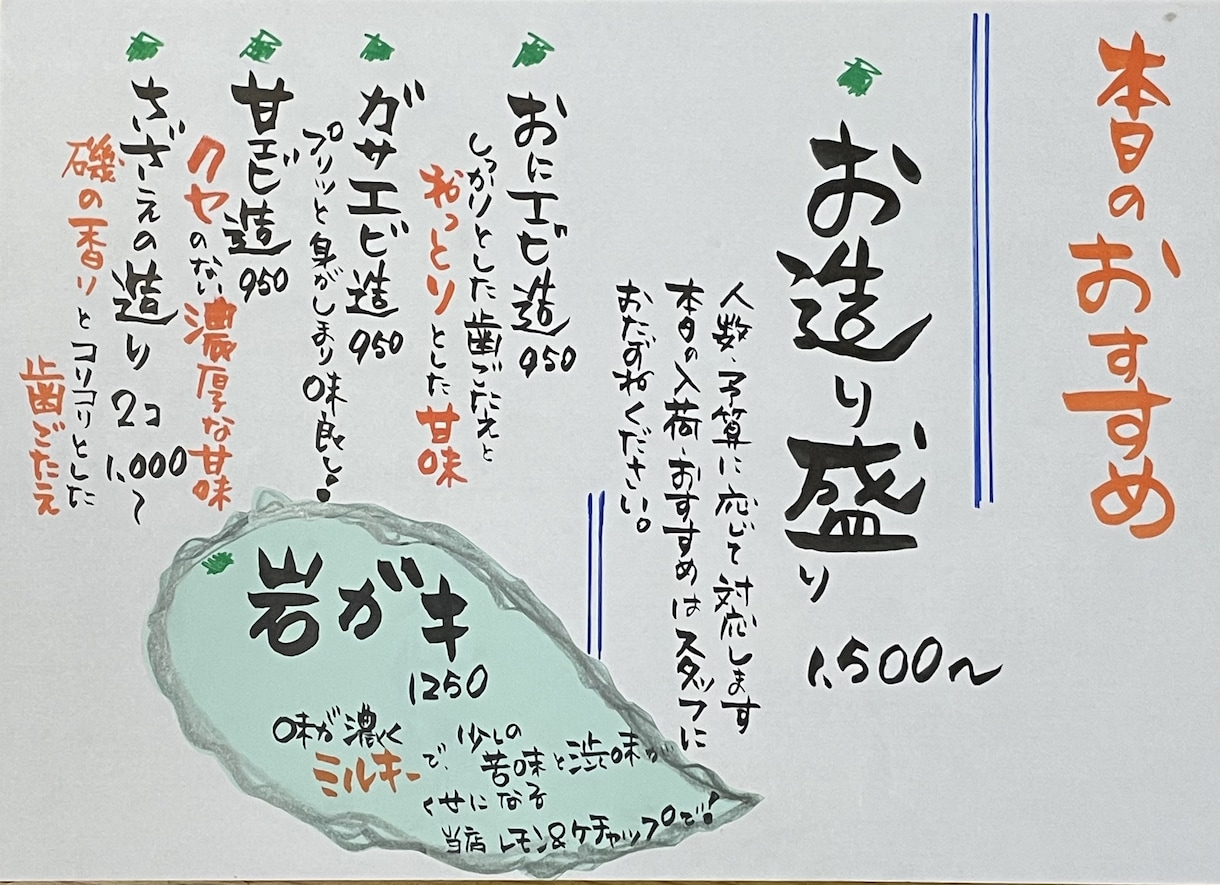 本日のおすすめ
お造り盛り 1,500~
人数・予算に応じて対応します
本日の入荷・おすすめはスタッフに
おたずねください。
おにエビ造 950
しっかりとした歯ごたえと
ねっとりとした甘味
ガサエビ造 950
プリッと身がしまり味良し!
甘エビ造 950
クセのない濃厚な甘味
さざえの造り 2コ 1,000~
磯の香りとコリコリとした
歯ごたえ
岩ガキ
1250
味が濃く
ミルキーで、
少しの
苦味と渋味が
くせになる
当店レモン&ケチャップで!